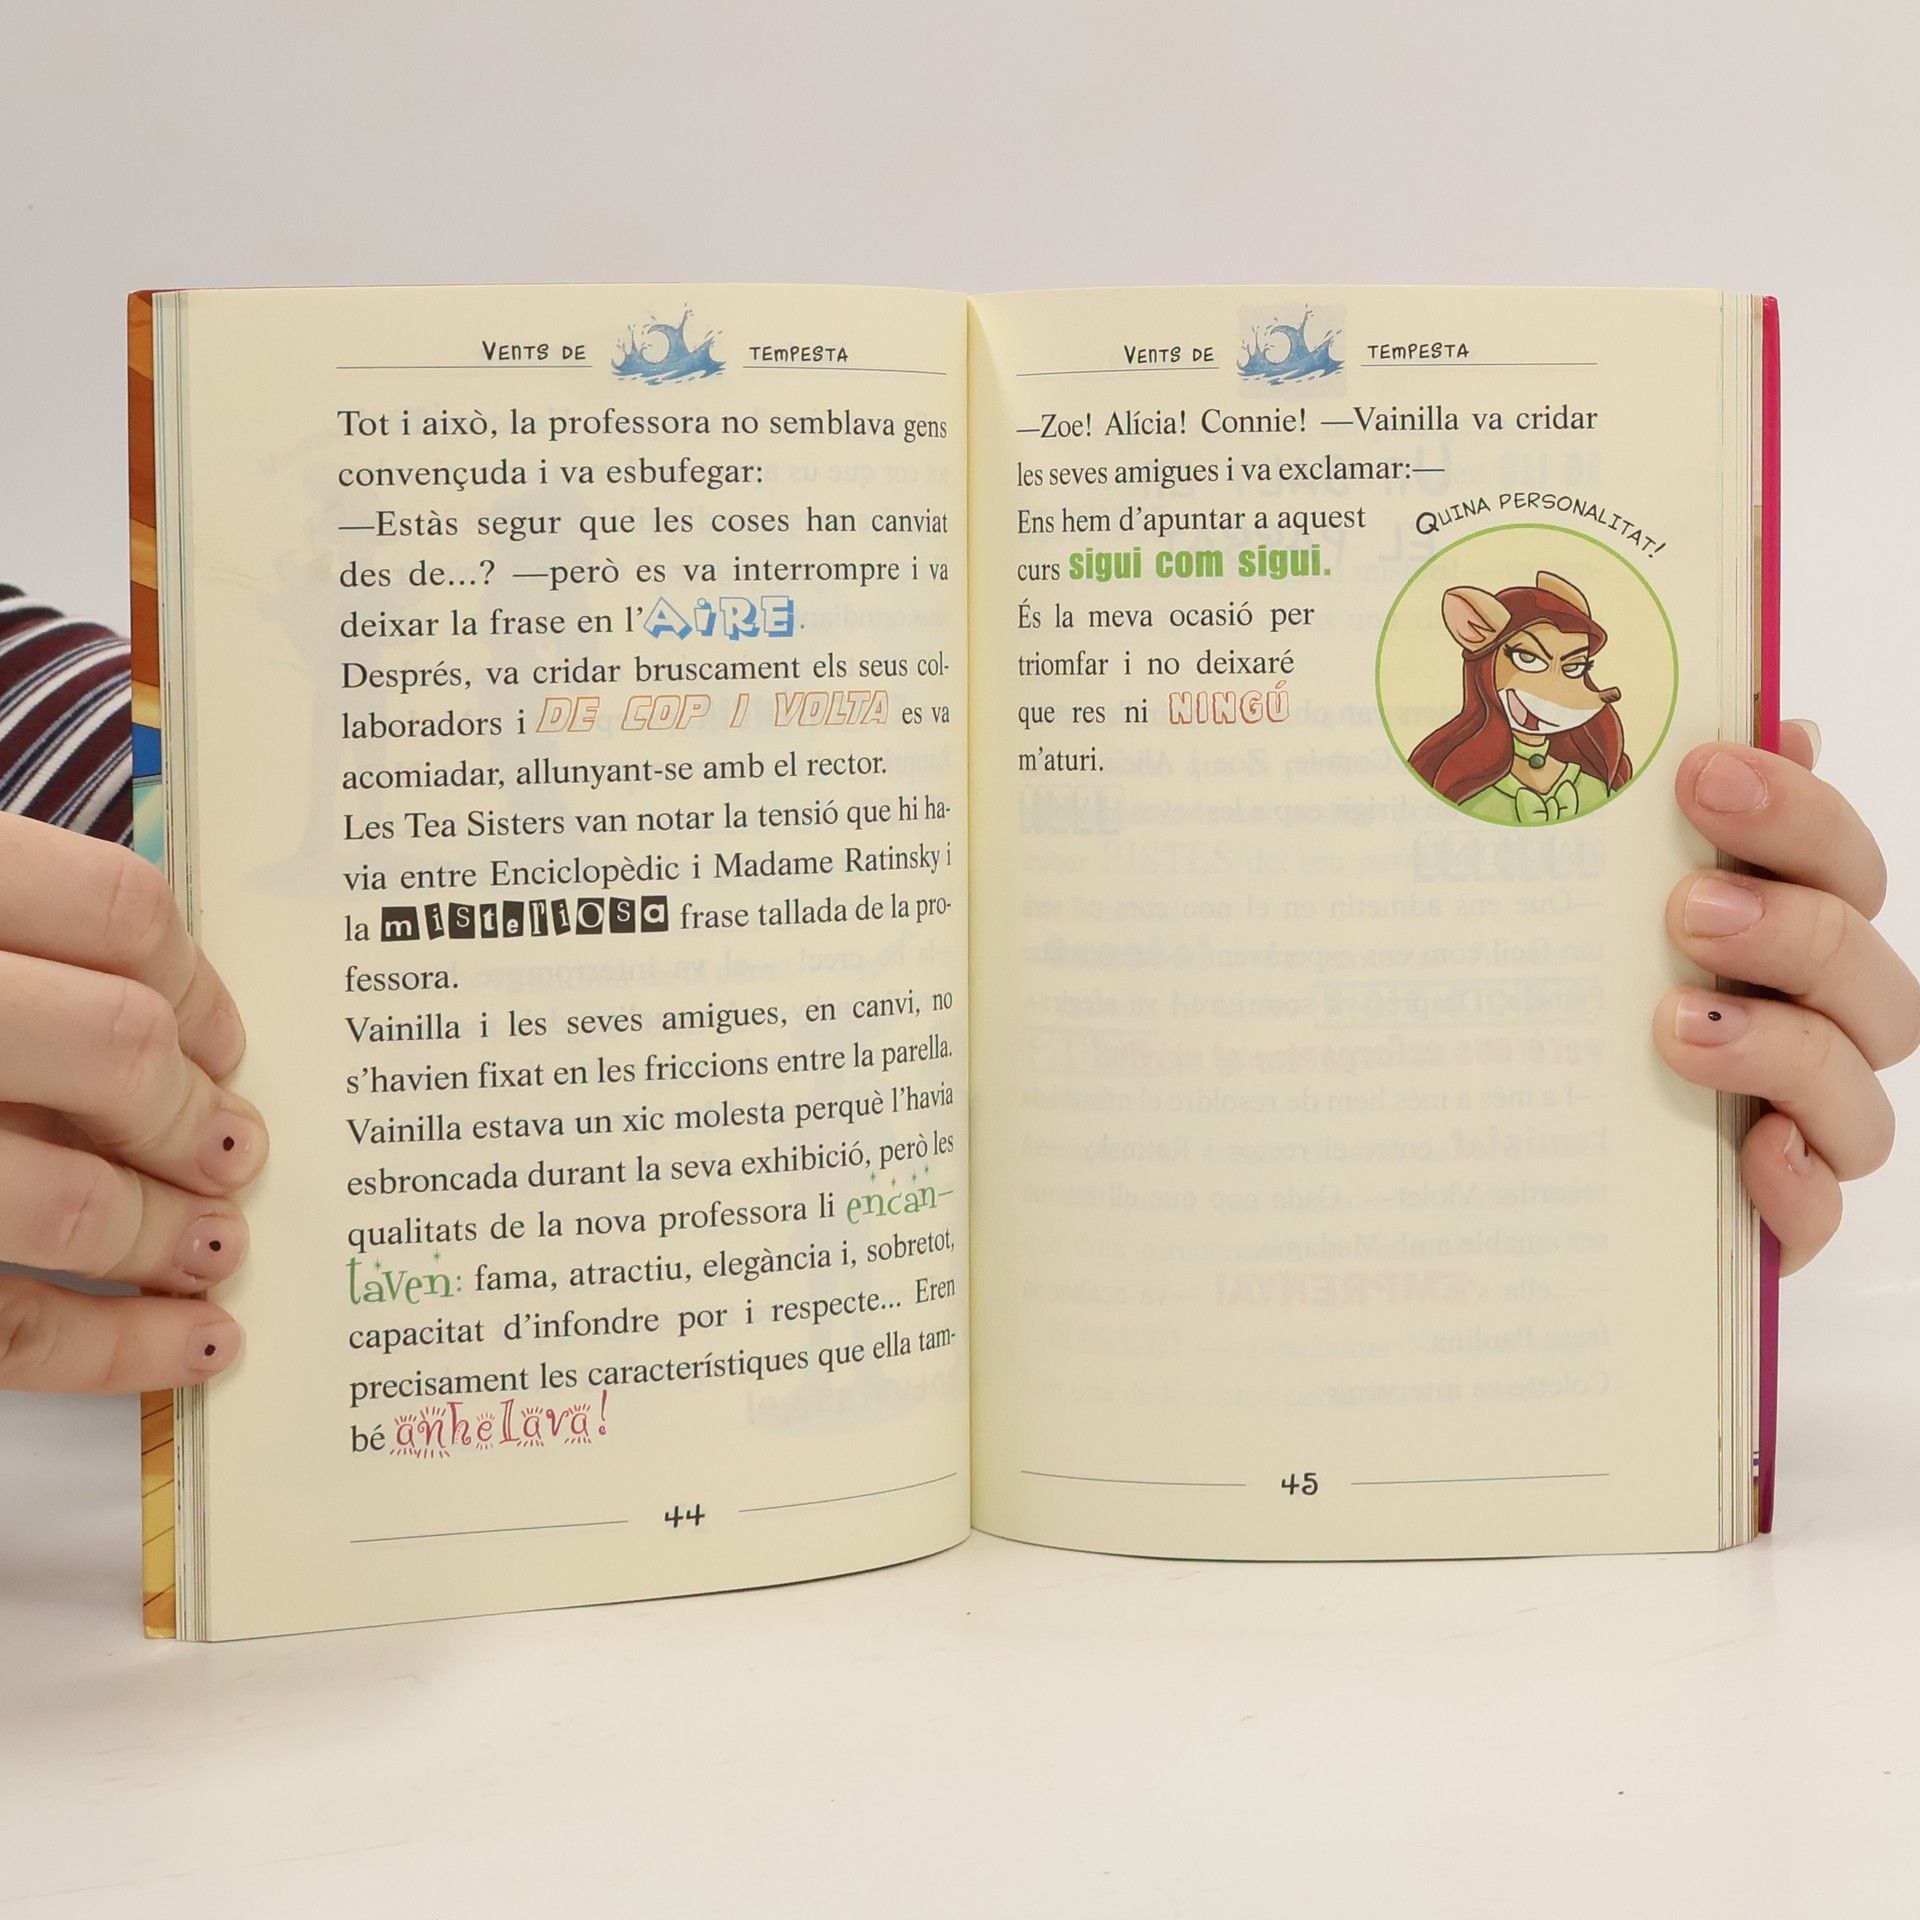 VENTS DE TEMPESTA
Tot i això, la professora no semblava gens
convençuda i va esbufegar:
—Estàs segur que les coses han canviat
des de...? —però es va interrompre i va
deixar la frase en l’AIRE.
Després, va cridar bruscament els seus col-
laboradors i DE COP I VOLTA es va
acomiadar, allunyant-se amb el rector.
Les Tea Sisters van notar la tensió que hi ha-
via entre Enciclopèdic i Madame Ratinsky i
la misteriosa frase tallada de la pro-
fessora.
Vainilla i les seves amigues, en canvi, no
s’havien fixat en les friccions entre la parella.
Vainilla estava un xic molesta perquè l’havia
esbroncada durant la seva exhibició, però les
qualitats de la nova professora li encan-
taven: fama, atractiu, elegància i, sobretot,
capacitat d’infondre por i respecte... Eren
precisament les característiques que ella tam-
bé anhelava!
44
VENTS DE TEMPESTA
—Zoe! Alícia! Connie! —Vainilla va cridar
les seves amigues i va exclamar:—
Ens hem d’apuntar a aquest
curs sigui com sigui.
És la meva ocasió per
triomfar i no deixaré
que res ni NINGÚ
m’aturi.
QUINA PERSONALITAT!
45